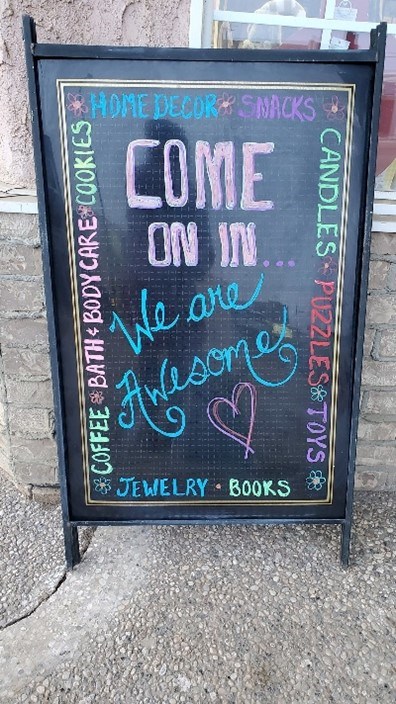 HOME DECOR SNACKS
COME
ON IN...
We are
Awesome!
COFFEE BATH & BODY CARE COOKIES
CANDLES PUZZLES TOYS
JEWELRY • BOOKS